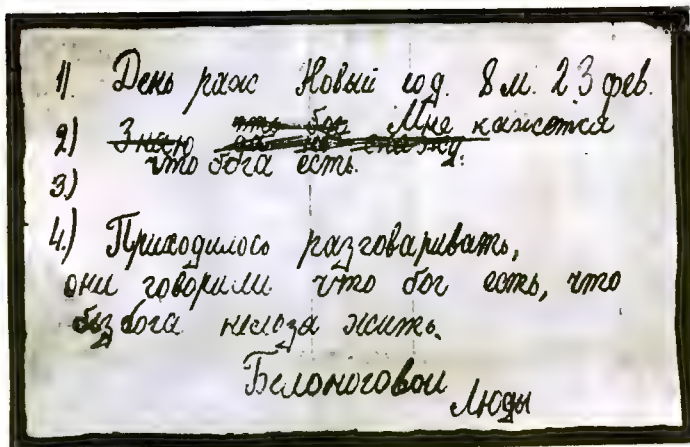 1). День раж Новый год. 8 м. 23 фев.
2) Знаю что бог Мне кажется
что бога есть.
3)
4.) Приходилось разговаривать,
они говорили что бог есть, что
без бога нельзя жить.
Белоноговой
Люды